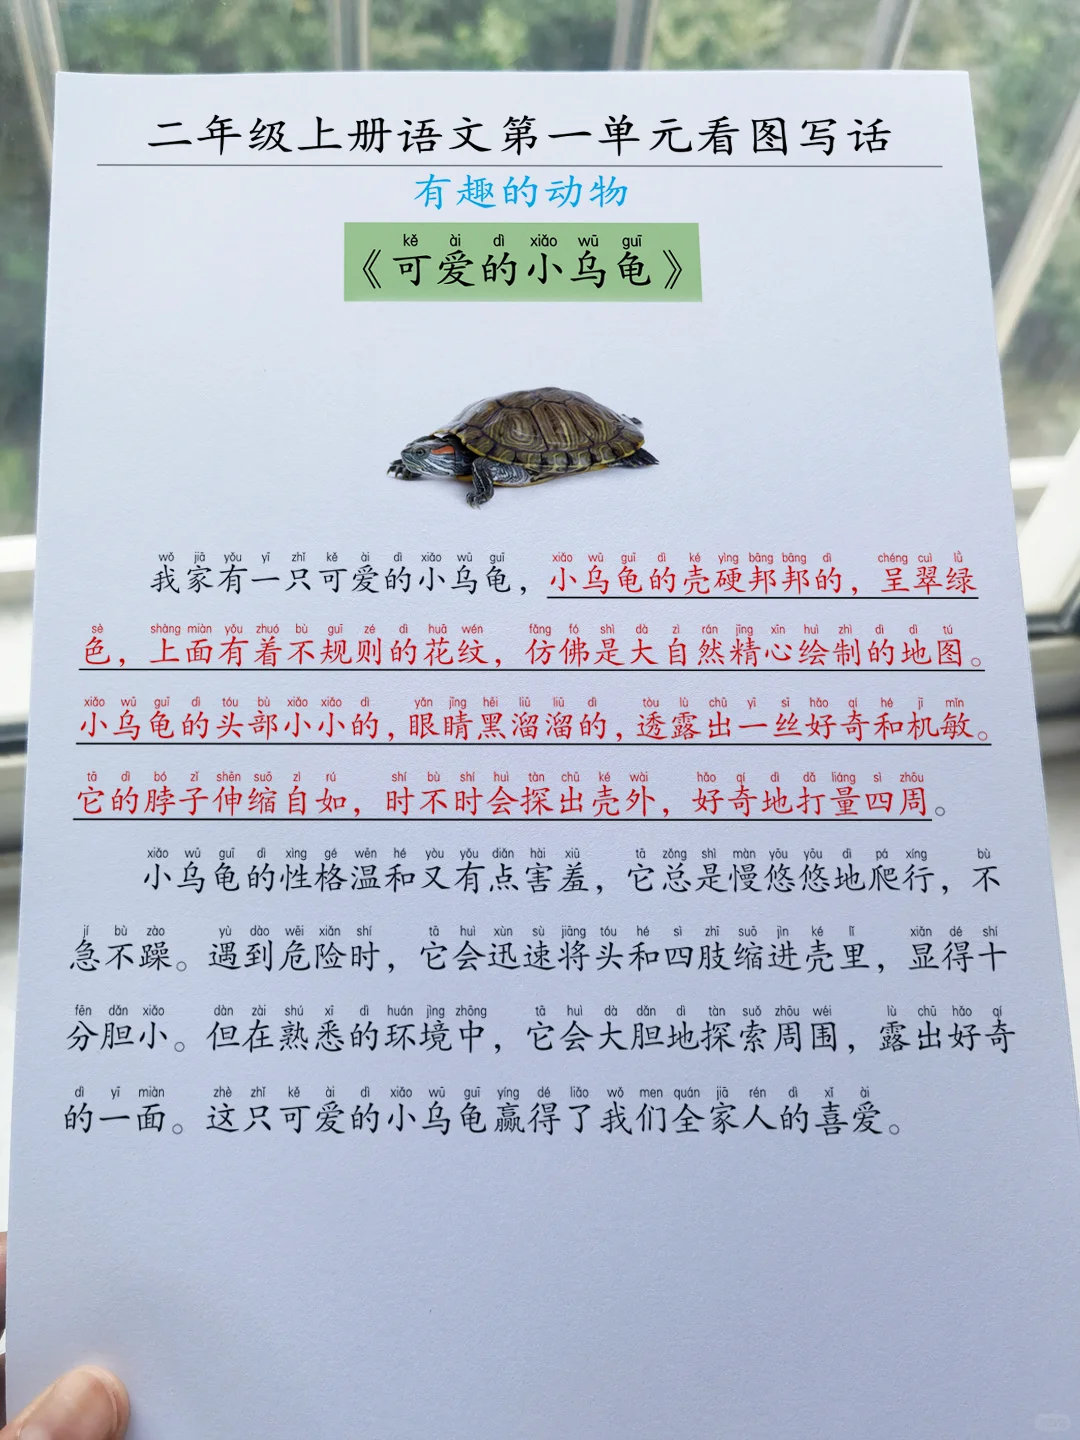 二年级上册语文第一单元看图写话
有趣的动物
kě ài dì xiǎo wū guī
《可爱的小乌龟》
wǒ jiā yǒu yī zhǐ kě ài dì xiǎo wū guī xiǎo wū guī dì ké yìng bāng bāng dì chéng cuì lǜ
我家有一只可爱的小乌龟，小乌龟的壳硬邦邦的，呈翠绿
sè shàng miàn yǒu zhuó bù guī zé dì huā wén fǎng fó shì dà zì rán jīng xīn huì zhì dì dì tú
色，上面有着不规则的花纹，仿佛是大自然精心绘制的地图。
xiǎo wū guī dì tóu bù xiǎo xiǎo dì yǎn jīng hēi liū liū dì tòu lù chū yī sī hào qí hé jī mǐn
小乌龟的头部小小的，眼睛黑溜溜的，透露出一丝好奇和机敏。
tā dì bó zǐ shēn suō zì rú shí bù shí huì tàn chū ké wài hào qí dì dǎ liáng sì zhōu
它的脖子伸缩自如，时不时会探出壳外，好奇地打量四周。
xiǎo wū guī dì xìng gé wēn hé yòu yǒu diǎn hài xiū tā zǒng shì màn yōu yōu dì pá xíng bù
小乌龟的性格温和又有点害羞，它总是慢悠悠地爬行，不
jí bù zào yù dào wēi xiǎn shí tā huì xùn sù jiāng tóu hé sì zhī suō jìn ké lǐ xiǎn dé shí
急不躁。遇到危险时，它会迅速将头和四肢缩进壳里，显得十
fēn dǎn xiǎo dàn zài shú xī dì huán jìng zhōng tā huì dà dǎn dì tàn suǒ zhōu wéi lù chū hǎo qí
分胆小。但在熟悉的环境中，它会大胆地探索周围，露出好奇
dì yī miàn zhè zhǐ kě ài dì xiǎo wū guī yíng dé liǎo wǒ men quán jiā rén dì xǐ ài
的一面。这只可爱的小乌龟赢得了我们全家人的喜爱。